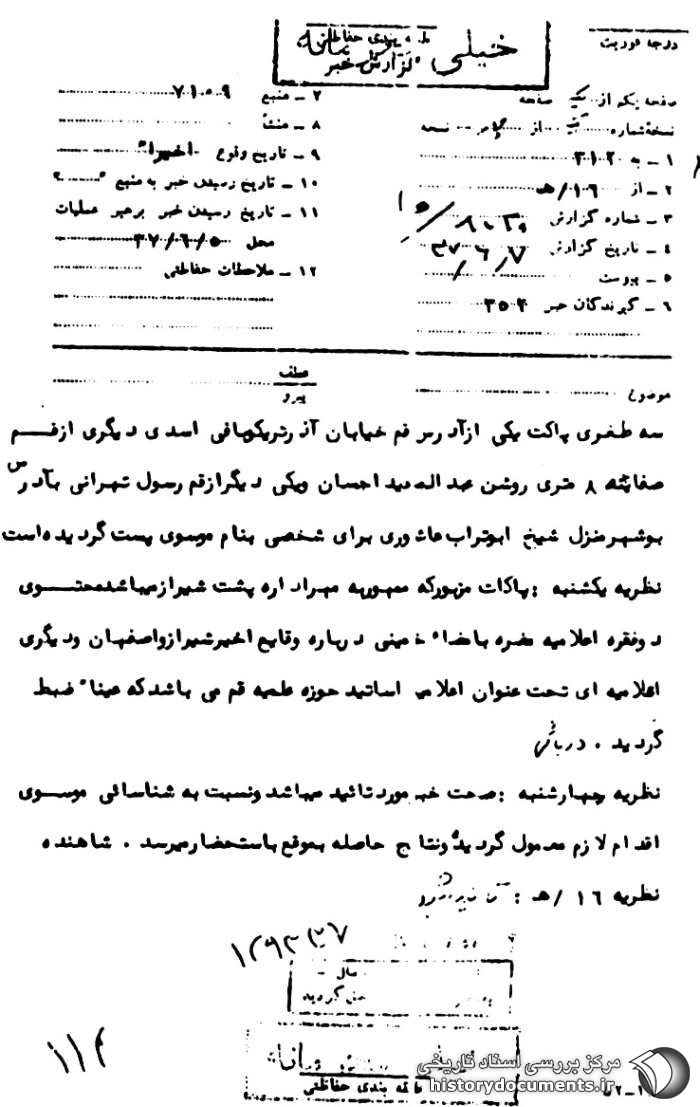 درجه فوریت
طبقه بندی حفاظتی
خیلی محرمانه
گزارش خبر
صفحه یکم از یک صفحه
نسخه شماره از نسخه
۱ ـ به ۳۱۲۰
۲ ـ از ۱۶/هـ
۳ ـ شماره گزارش
۴ ـ تاریخ گزارش ۳۷/۶/۷
۵ ـ پیوست
۶ ـ گیرندگان خبر ۳۵۲
۷ ـ منبع ۷۱۵۹
۸ ـ منشأ
۹ ـ تاریخ وقوع اخیرا"
۱۰ ـ تاریخ رسیدن خبر به منبع
۱۱ ـ تاریخ رسیدن خبر برهبر عملیات
محل ۳۷/۶/۵
۱۲ ـ ملاحظات حفاظتی
موضوع
عطف
پیرو
سه طغری پاکت یکی ازآدرس قم خیابان آذر تریکوبافی اسدی دیگری ازقم
صفائیه ۸ متری روشن عبدالمجید احسان ویکی دیگرازقم رسول تهرانی بآدرس
بوشهرمنزل شیخ ابوتراب عاشوری برای شخصی بنام موسوی پست گردیده است
نظریه یکشنبه : پاکات مزبورکه ممهوربه مهراداره پشت شیرازمیباشدمحتوی
دوفقره اعلامیه مضره باامضاء خمینی درباره وقایع اخیرشیرازواصفهان ودیگری
اعلامیه ای تحت عنوان اعلامیه اساتید حوزه علمیه قم می باشدکه عینا" ضبط
گردید .
نظریه چهارشنبه : صحت خبرموردتائید میباشد ونسبت به شناسائی موسوی
اقدام لازم معمول گردیده ونتایج حاصله بموقع باستحضارمیرسد . شاهنده
نظریه ۱۶ /هـ :
سال
گردید
۱۱۴
طبقه بندی حفاظتی
مرکز بررسی اسناد تاریخی
historydocuments.ir